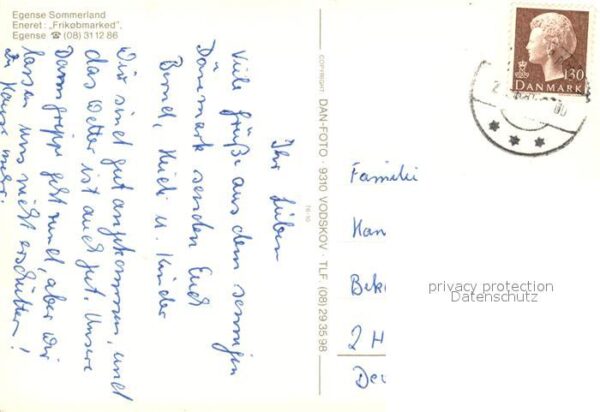 Egense Sommerland
Eneret: „Frikøbmarked”,
Egense ☎ (08) 31 12 86
Ihr Lieben
Viele Grüße aus dem sonnigen
Dänemark senden Euch
Bernd, Heidi u. Kinder
Wir sind gut angekommen, und
das Wetter ist auch gut. Unsere
Darmgrippe geht rund, aber wir
lassen uns nicht erschüttern!
Zu Hause mehr.
COPYRIGHT DAN-FOTO · 9310 VODSKOV · TLF. (08) 29 35 98
130
DANMARK
Familie
Han
Bek
2 H
Deu
privacy protection
Datenschutz